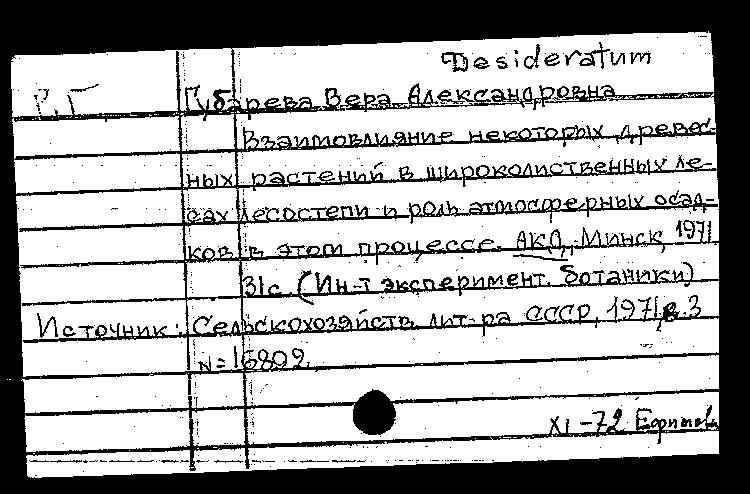 Desideratum
Р.Г Губарева Вера Александровна
Взаимовлияние некоторых древес-
ных растений в широколиственных ле-
сах лесостепи и роль атмосферных осад-
ков в этом процессе. АКД, Минск, 1971
31с. (Ин-т эксперимент. ботаники)
Источник: Сельскохозяйств. лит-ра СССР, 1971, в. 3
N=16809.
XI-72 Ефимова